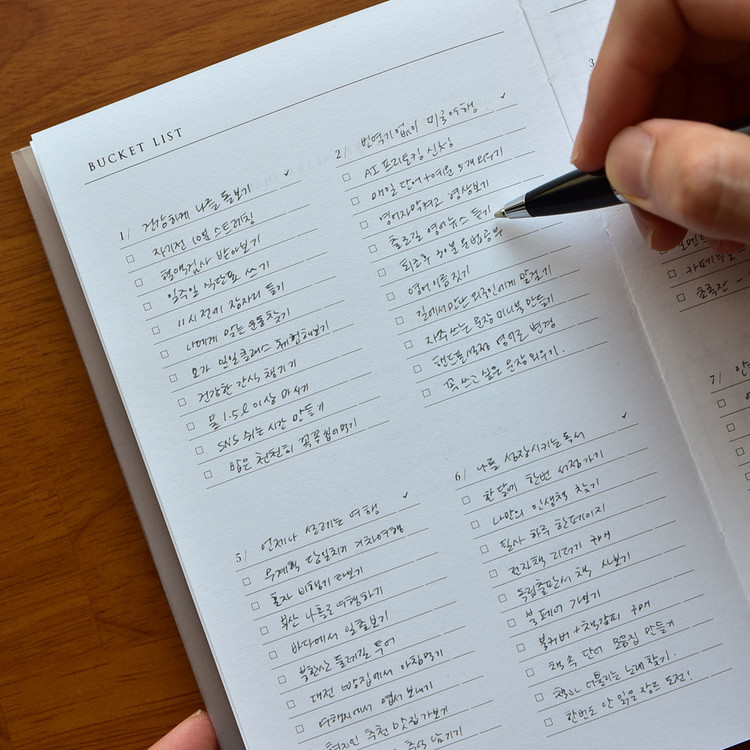 BUCKET LIST
1/ 건강하게 나를 돌보기
자기전 10분 스트레칭
혈액검사 받아보기
일주일 식단표 쓰기
11시 전에 잠자리 들기
나에게 맞는 운동찾기
요가 원일클래스 체험해보기
건강한 간식 챙기기
물 1.5ℓ 이상 마시기
SNS 쉬는 시간 만들기
밥은 천천히 꼭꼭 씹어먹기
2/ 번역기없이 미국여행
AI 프리토킹 신청
매일 단어+예문 5개 외우기
영어자막켜고 영상보기
출근길 영어뉴스 듣기
퇴근후 30분 문법공부
영어 이름 짓기
길에서 만난 외국인에게 말걸기
자주쓰는 문장 미니북 만들기
핸드폰설정 영어로 변경
꼭 쓰고 싶은 문장 외우기.
5/ 언제나 설레는 여행
무계획 당일치기 기차여행
혼자 비행기 타보기
부산 나홀로여행하기
바다에서 일출보기
북한산 둘레길 투어
대전 빵집에서 아침먹기
여행지에서 엽서 보내기
현지인 추천 맛집가보기
남기기
6/ 나를 성장시키는 독서
한달에 한번 서점가기
나만의 인생책 찾기
필사 하루 한페이지
전자책 리더기 구매
독립출판서 책 사보기
북 페어 가보기
북커버+책갈피 구매
책 속 단어 모음집 만들기
책과 어울리는 노래찾기.
한번도 안 읽은 장르 도전!
3
7/